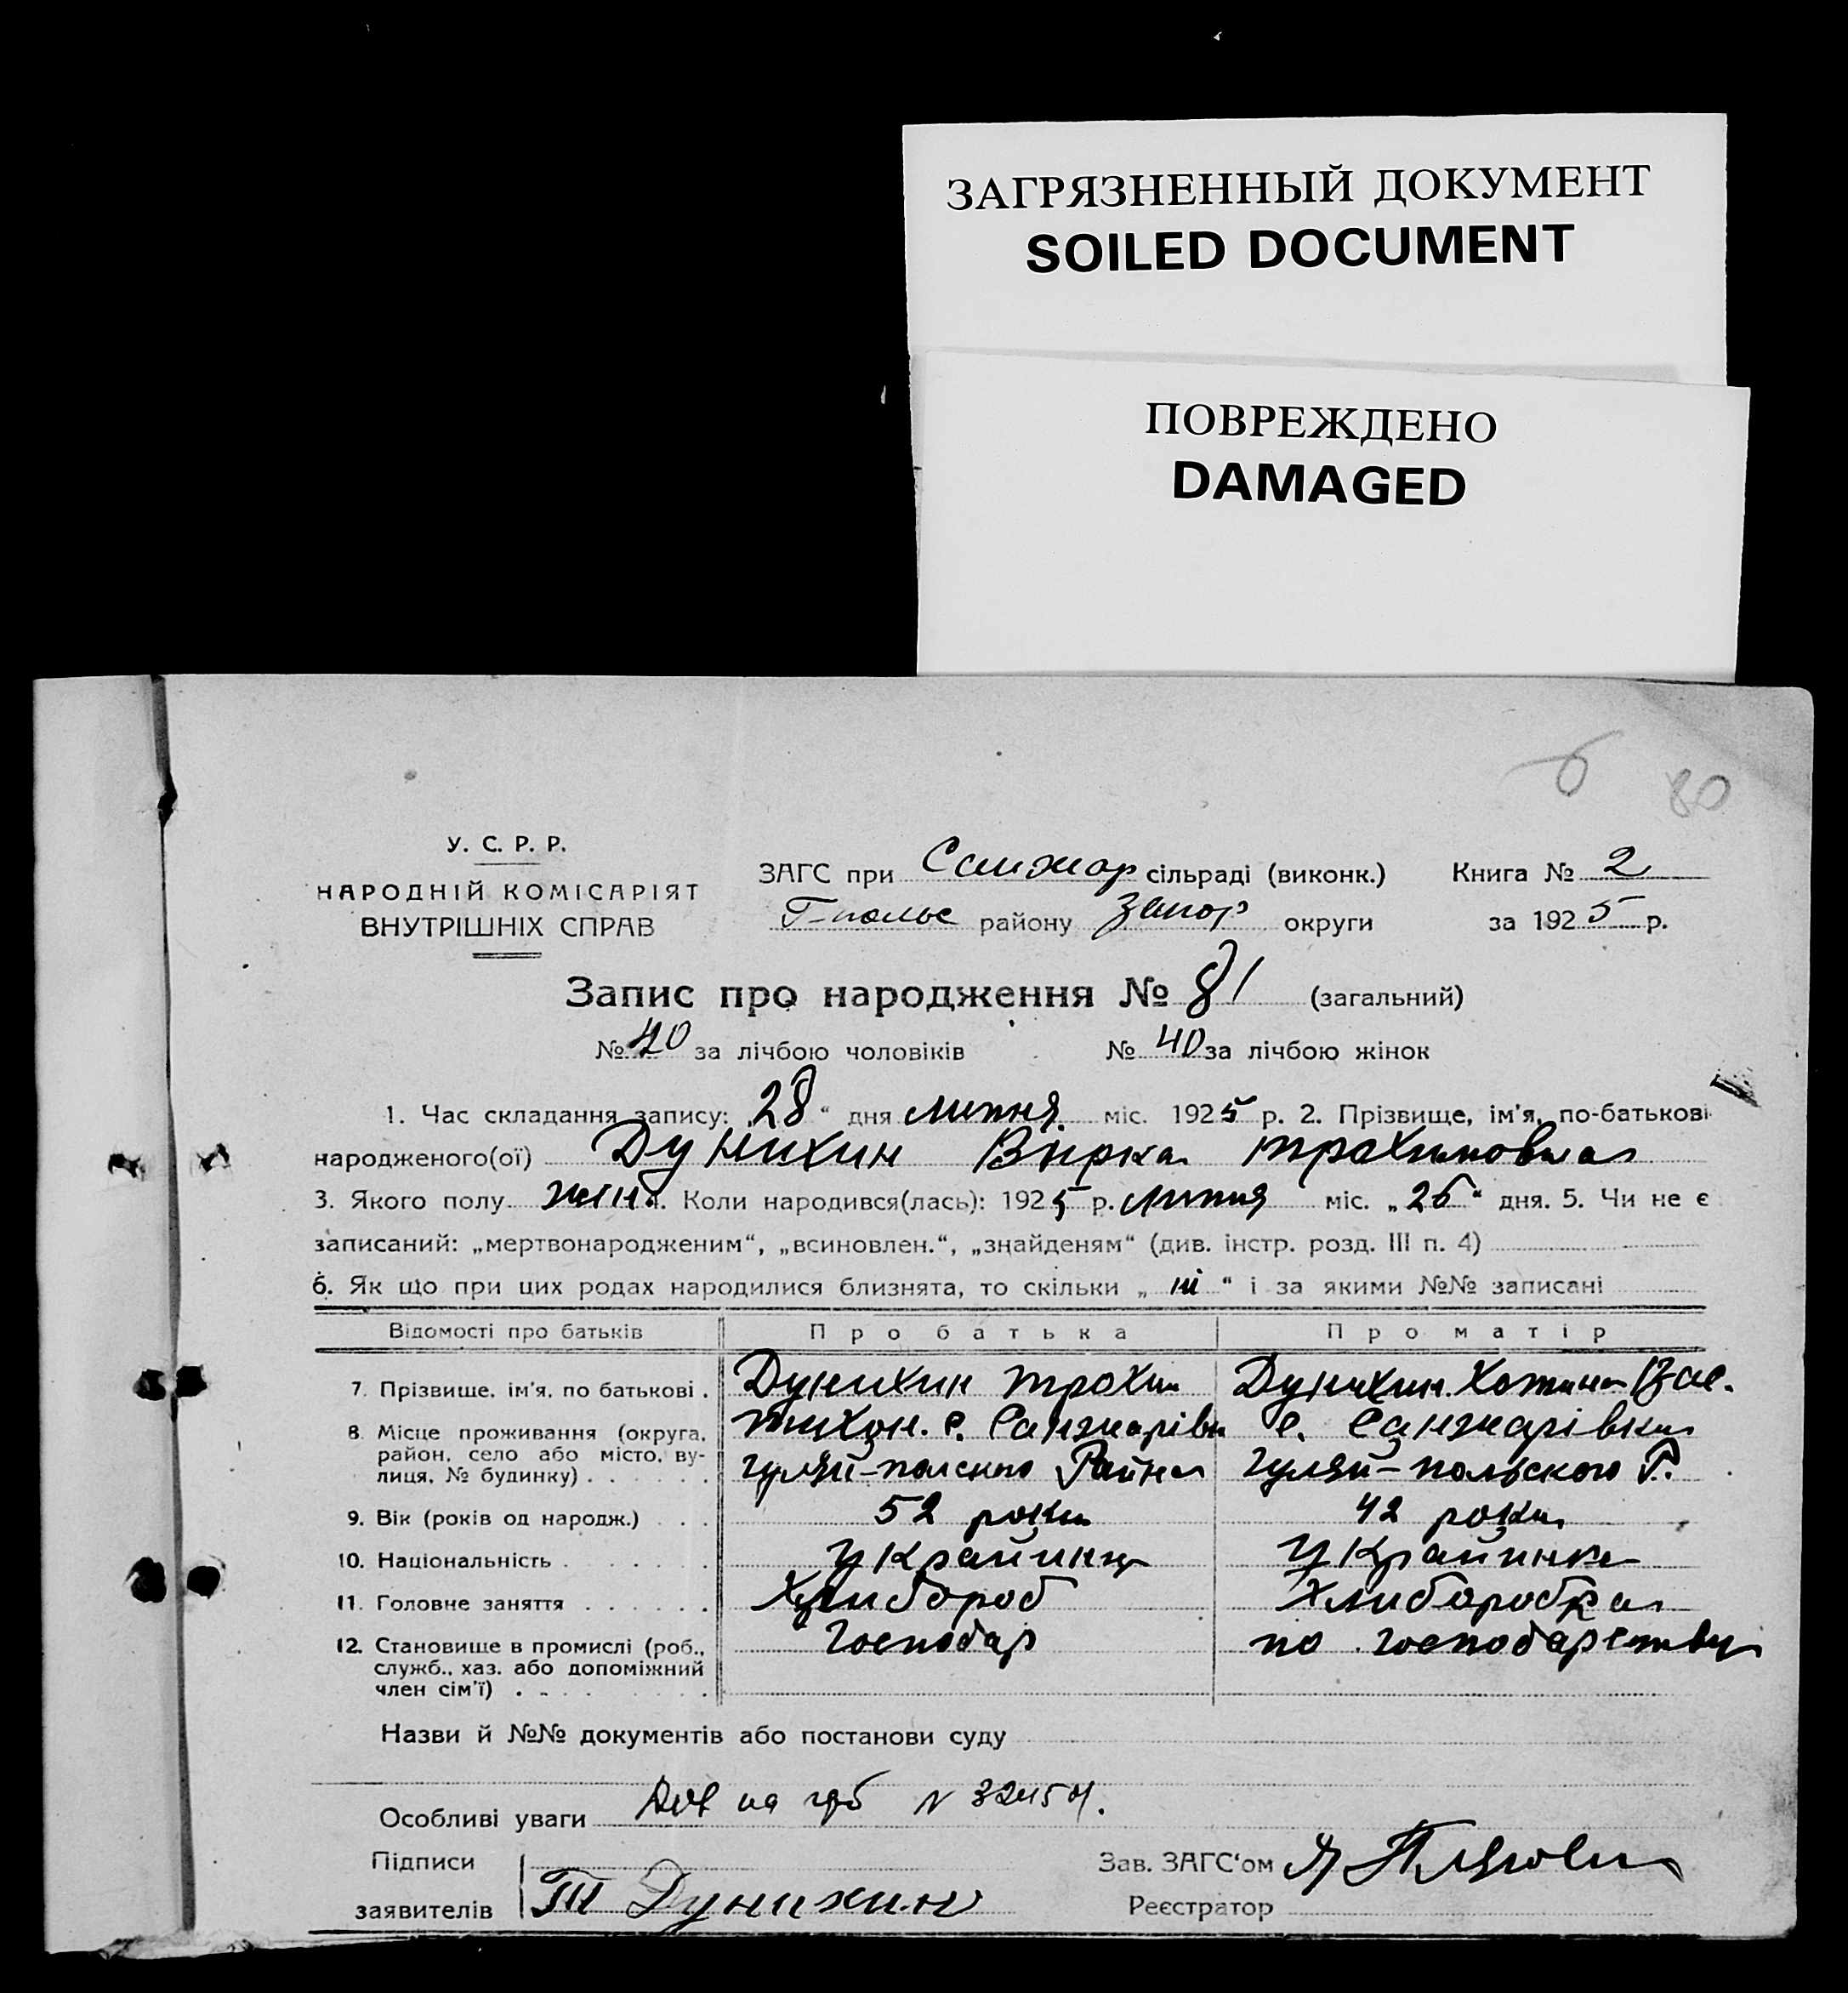 ЗАГРЯЗНЕННЫЙ ДОКУМЕНТ
SOILED DOCUMENT
ПОВРЕЖДЕНО
DAMAGED
б 80
У. С. Р. Р.
НАРОДНІЙ КОМІСАРІЯТ
ВНУТРІШНІХ СПРАВ
ЗАГС при Санжар сільраді (виконк.) Книга № 2
Г-польс району Запор округи за 1925 р.
Запис про народження № 81 (загальний)
№ 40 за лічбою чоловіків № 40 за лічбою жінок
1. Час складання запису: 28" дня липня міс. 1925 р. 2. Прізвище, ім'я, по-батькові
народженого(ої) Дунихин Вірка Трохимовна
3. Якого полу жін 4. Коли народився(лась): 1925 р. липня міс. „26" дня. 5. Чи не є
записаний: „мертвонародженим", „всиновлен.", „знайденям" (див. інстр. розд. III п. 4)
6. Як що при цих родах народилися близнята, то скільки „ні" і за якими №№ записані
Відомості про батьків Про батька Про матір
7. Прізвище, ім'я, по батькові . Дунихин Трохим Дунихин
8. Місце проживання (округа, район, село або місто, вулиця, № будинку) . . . Тихон. с. Санжарівка с. Санжарівка
Гуляй-польского Района Гуляй-польского Р.
9. Вік (років од народж.) . . . 52 роки 42 роки
10. Національність . . . . . . украйинец украйинка
11. Головне заняття . . . . . . Хлибороб Хлиборобка
12. Становище в промислі (роб., служб., хаз. або допоміжний член сім'ї) . . . . Господар по господарству
Назви й №№ документів або постанови суду
Особливі уваги
Підписи
заявителів Т Дунихин
Зав. ЗАГС'ом
Реєстратор